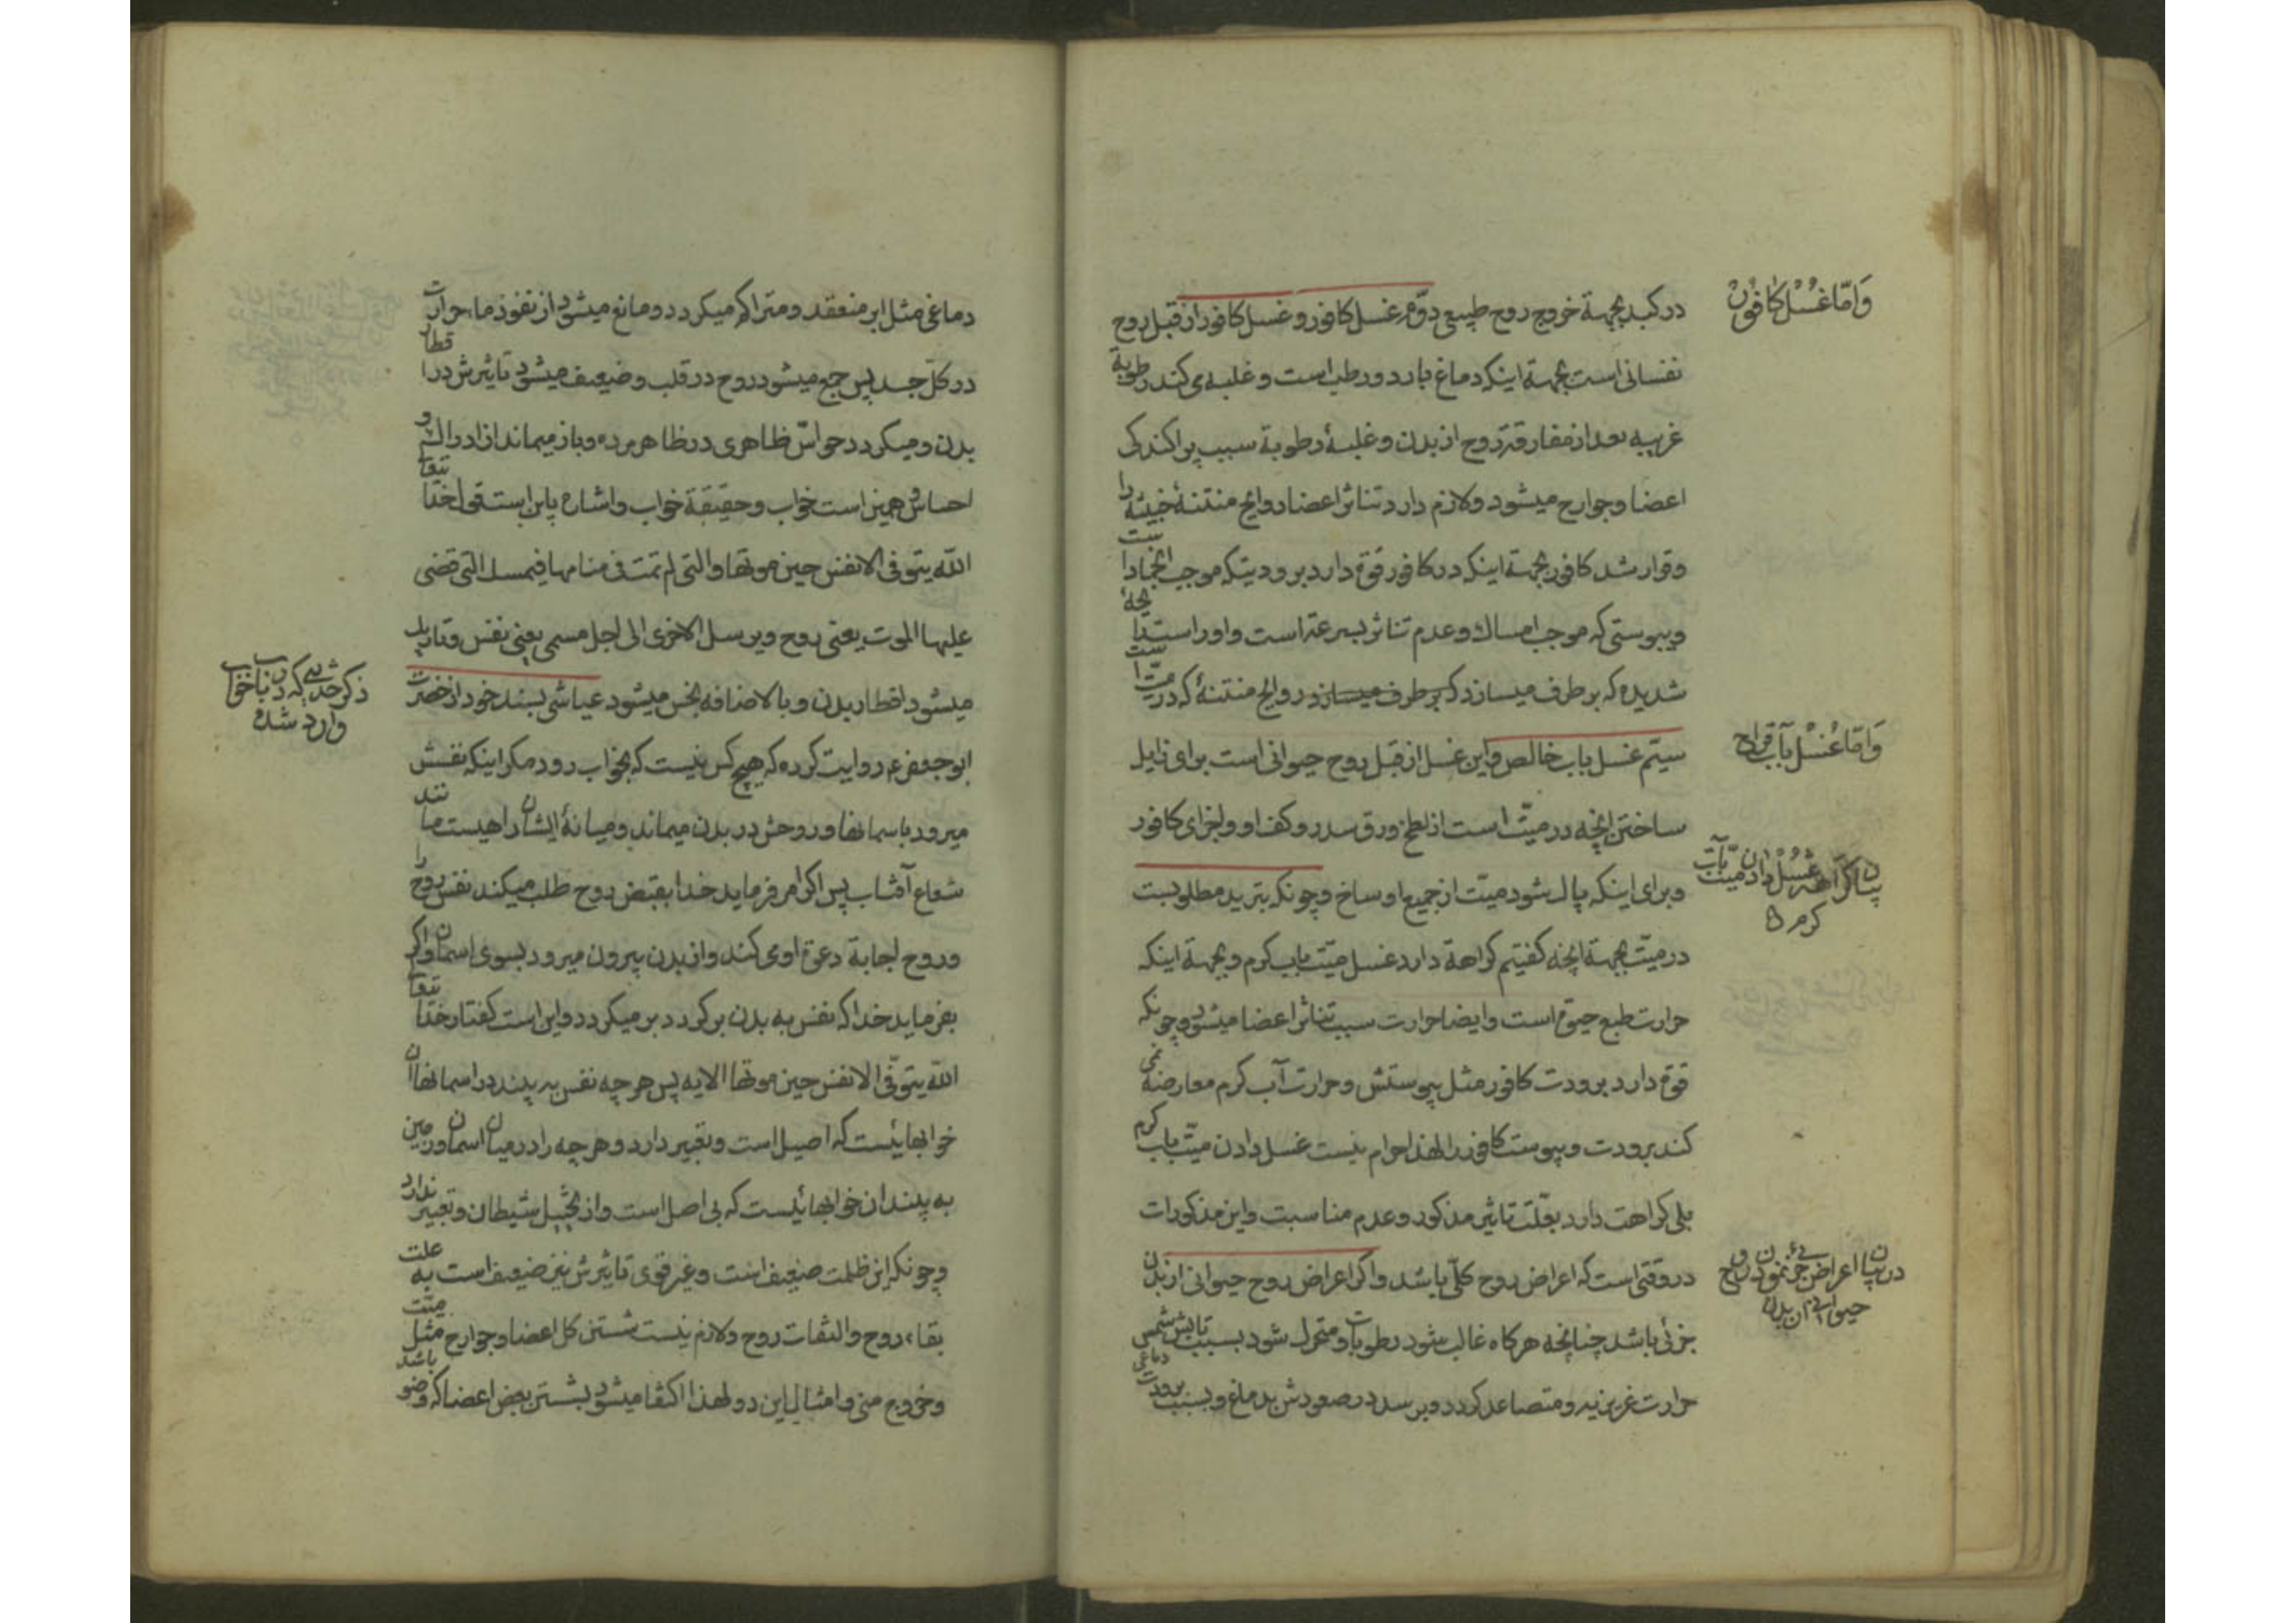 وَامّا غُسْل کافُورْ
در کبد بجهة خروج روح طبیعی دوّم غسل کافور و غسل کافور از قبل روح
نفسانی است بجهة اینکه دماغ بارد و رطب است و غلبه می کند رطوبة
غریبه بعد از مفارقة روح از بدن و غلبهٔ رطوبة سبب پراکندکی
اعضا و جوارح میشود و لازم دارد تناثر اعضا روایح منتنهٔ خبیثه را
و قرار شد کافور بجهة اینکه در کافور قوّة دارد برودیتکه موجب انجماد است
و یبوستی که موجب امساك و عدم تناثر بسرعة است و او راست رایحهٔ
شدیده که بر طرف میسازد که بر طرف میسازد روایح منتنهٔ که در میّت است
وَامّا غُسْل بآب قراح
سیّم غسل باب خالص و این غسل از قبل روح حیوانی است برای زایل
ساختن آنچه در میّت است از لطخ ورق سدر و کف او و اجزای کافور
بیان کراهة غُسْل دادن میّت بآب
کرم
و برای اینکه پاك شود میّت از جمیع اوساخ و چونکه تبرید مطلوبست
در میّت بجهة آنچه کفتیم کراهة دارد غسل میّت باب کرم و بجهة اینکه
حرارت طبع حیوة است و ایضا حرارت سبب تناثر اعضا میشود و چونکه
قوّة دارد برودت کافور مثل یبوستش و حرارت آب کرم معارضه نمی
کند برودت و یبوست کافور را لهذا حرام نیست غسل دادن میّت باب کرم
بلی کراهت دارد بعلّت تاثیر مذکور و عدم مناسبت و این مذکورات
در بیان اعراض جزئی نمودن روح
حیوانی از بدن
در وقتی است که اعراض روح کلّی باشد و اکر اعراض روح حیوانی از بدن
جزئی باشد چنانچه هرکاه غالب شود رطوبات و متحرك شود بسبب تابش شمس
حرارت غریزیه و متصاعد کردد و برسد در صعودش بدماغ و بسبب برودت دماغی
دماغی مثل ابر منعقد و متراکم میکردد و مانع میشود از نفوذ حرارت
در کلّ جسد پس جمع میشود روح در قلب و ضعیف میشود تاثیرش در اقطار
بدن و میکردد حواسّ ظاهری در ظاهر مرده و باز میماند از ادراك و
احساس و همین است خواب و حقیقة خواب و اشاره باین است قول خدایتعا
اللّه یتوفی الانفس حین موتها و التی لم تمت فی منامها فیمسك التی قضی
علیها الموت یعنی روح و یرسل الاخری الی اجل مسمی یعنی نفس
ذکر حدیثی که در باب خواب
وارد شده
میشود اقطار بدن و بالاضافه نجس میشود عیاشی بسند خود از حضرت
ابو جعفر ع روایت کرده که هیچ کس نیست که بخواب رود مکر اینکه نفسش
میرود باسمانها و روحش در بدن میماند و میانهٔ ایشان راهیست مانند
شعاع آفتاب پس اکر امر فرماید خدا بقبض روح طلب میکند نفس روح را
و روح اجابة دعوة او می کند و از بدن بیرون میرود بسوی اسمان و اکر
بفرماید خدا که نفس به بدن برکردد بر میکردد و این است کفتار خدایتعا
اللّه یتوفّی الانفس حین موتها الایه پس هرچه نفس به بیند در اسمانها آن
خوابهائیست که اصیل است و تعبیر دارد و هرچه را در میان اسمان و زمین
به بیند ان خوابهائیست که بی اصل است و از تخییل شیطان و تعبیر ندارد
و چونکه این ظلمت ضعیف است و غیر قوی تاثیرش نیز ضعیف است به علت
بقاء روح و التفات روح و لازم نیست شستن کل اعضا و جوارح مثل میّت
و خروج منی و امثال این دو لهذا اکتفا میشود بشستن بعض اعضا که وضو باشد